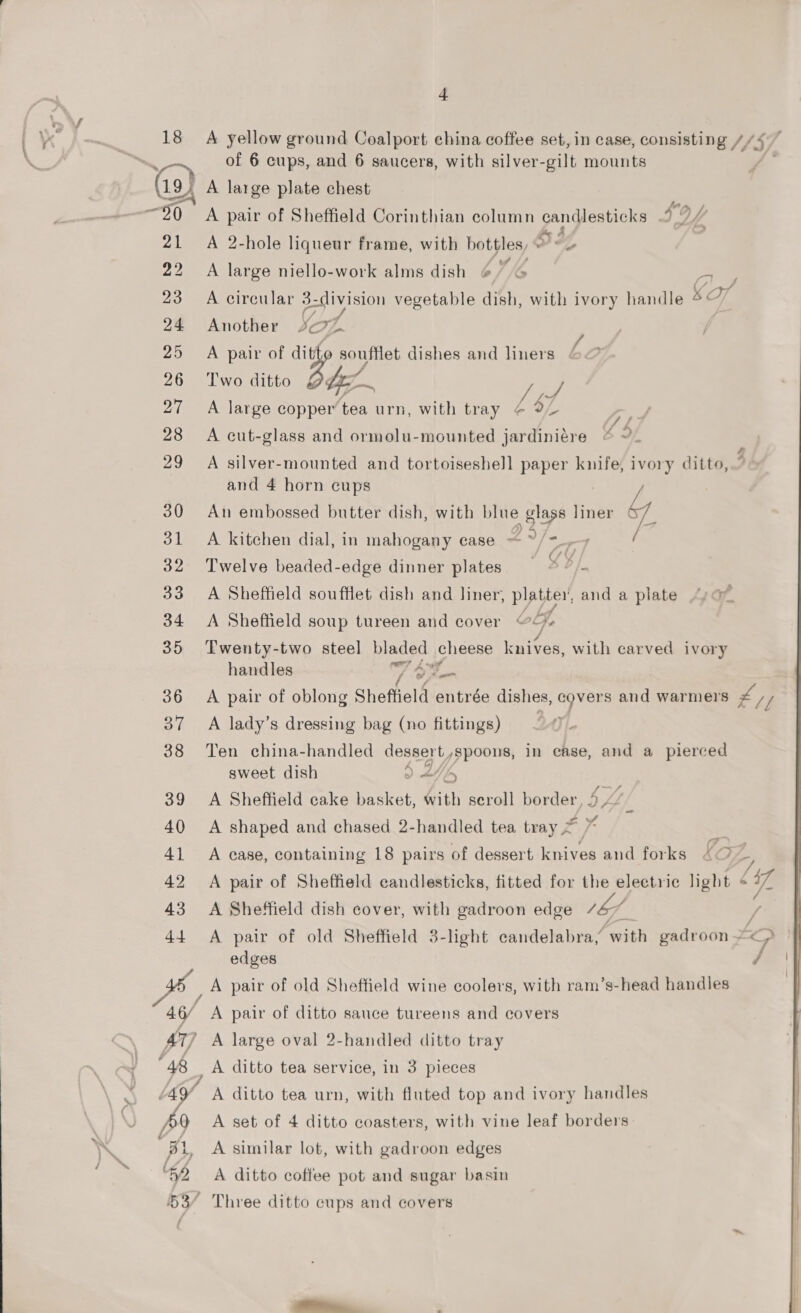 4
18 A yellow ground Coalport china coffee set, in case, consisting
of 6 cups, and 6 saucers, with silver-gilt mounts
19 A large plate chest
20 A pair of Sheffield Corinthian column candlesticks
21 A 2-hole liqueur frame, with bottles,
22 A large niello-work alms dish
23 A circular 3-division vegetable dish, with ivory handle
24 Another
25 A pair of ditto soufflet dishes and liners
26 Two ditto
27 A large copper tea urn, with tray
28 A cut-glass and ormolu-mounted jardinière
29 A silver-mounted and tortoiseshell paper knife, ivory ditto,
and 4 horn cups
30 An embossed butter dish, with blue glass liner
31 A kitchen dial, in mahogany case
32 Twelve beaded-edge dinner plates
33 A Sheffield soufflet dish and liner, platter, and a plate
34 A Sheffield soup tureen and cover
35 Twenty-two steel bladed cheese knives, with carved ivory
handles
36 A pair of oblong Sheffield entrée dishes, covers and warmers
37 A lady's dressing bag (no fittings)
38 Ten china-handled dessert spoons, in case, and a pierced
sweet dish
39 A Sheffield cake basket, with scroll border,
40 A shaped and chased 2-handled tea tray
41 A case, containing 18 pairs of dessert knives and forks
42 A pair of Sheffield candlesticks, fitted for the electric light
43 A Sheffield dish cover, with gadroon edge
44 A pair of old Sheffield 3-light candelabra, with gadroon
edges
45 A pair of old Sheffield wine coolers, with ram's-head handles
46 A pair of ditto sauce tureens and covers
47 A large oval 2-handled ditto tray
48 A ditto tea service, in 3 pieces
49 A ditto tea urn, with fluted top and ivory handles
50 A set of 4 ditto coasters, with vine leaf borders
51 A similar lot, with gadroon edges
52 A ditto coffee pot and sugar basin
53 Three ditto cups and covers